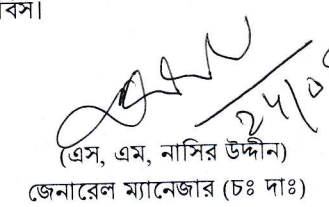 বস।
২৫/০
(এস, এম, নাসির উদ্দীন)
জেনারেল ম্যানেজার (চঃ দাঃ)